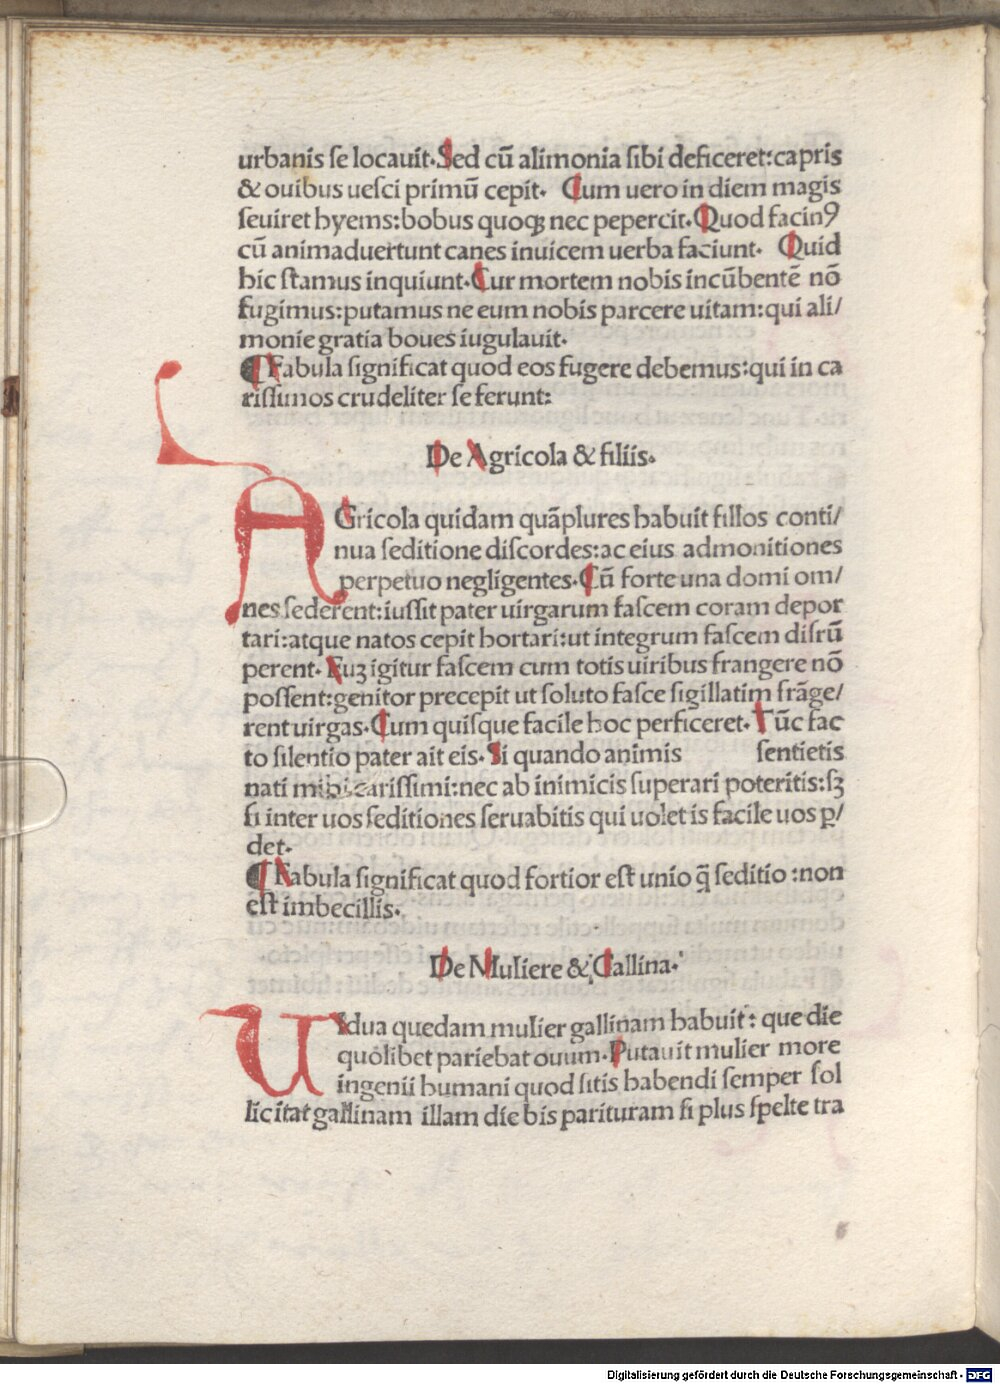 urbanis ſe locauit. Sed cū alimonia ſibi deficeret: capris
& ouibus ueſci primū cepit. Cum uero in diem magis
ſeuiret hyems: bobus quoqꝫ nec pepercit. Quod facinꝰ
cū animaduertunt canes inuicem uerba faciunt. Quid
hic ſtamus inquiunt. Cur mortem nobis incūbentē nō
fugimus: putamus ne eum nobis parcere uitam: qui ali/
monie gratia boues iugulauit.
¶ Fabula ſignificat quod eos fugere debemus: qui in ca
riſſimos crudeliter ſe ferunt:
De Agricola & filiis.
AGricola quidam quāplures habuit filios conti/
nua ſeditione diſcordes: ac eius admonitiones
perpetuo negligentes. Cū forte una domi om/
nes ſederent: iuſſit pater uirgarum faſcem coram depor
tari: atque natos cepit hortari: ut integrum faſcem diſrū
perent. Euꝫ igitur faſcem cum totis uiribus frangere nō
poſſent: genitor precepit ut ſoluto faſce ſigillatim frāge/
rent uirgas. Cum quiſque facile hoc perficeret. Tūc fac
to ſilentio pater ait eis. Si quando animis ſentietis
nati mihi cariſſimi: nec ab inimicis ſuperari poteritis: ſꝫ
ſi inter uos ſeditiones ſeruabitis qui uolet is facile uos ꝑ/
det.
¶ Fabula ſignificat quod fortior eſt unio q̄ ſeditio: non
eſt imbecillis.
De Muliere & Gallina.
UIdua quedam mulier gallinam habuit: que die
quolibet pariebat ouum. Putauit mulier more
ingenii humani quod ſitis habendi ſemper ſol
licitat gallinam illam die bis parituram ſi plus ſpelte tra
Digitalisierung gefördert durch die Deutsche Forschungsgemeinschaft - DFG